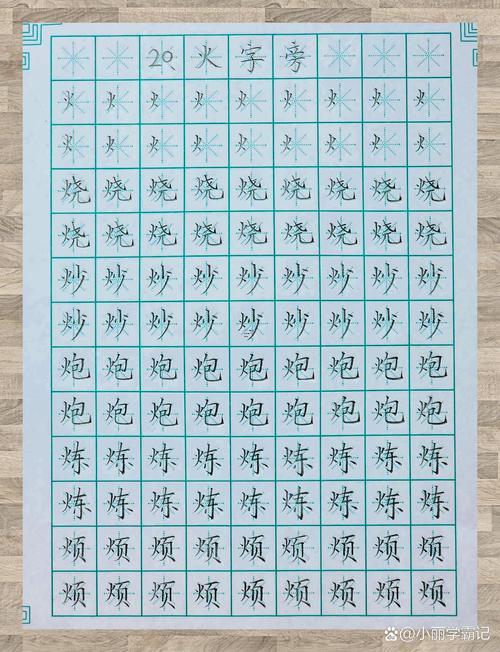 20、火字旁
火火火火火火火火火
火火火火火火火火火
烧烧烧烧烧烧烧烧烧
烧烧烧烧烧烧烧烧烧
炒炒炒炒炒炒炒炒炒
炒炒炒炒炒炒炒炒炒
炮炮炮炮炮炮炮炮炮
炮炮炮炮炮炮炮炮炮
炼炼炼炼炼炼炼炼炼
炼炼炼炼炼炼炼炼炼
烦烦烦烦烦烦烦烦烦
烦烦烦烦烦烦烦烦烦
小丽学霸记